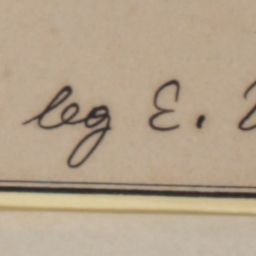 leg E.